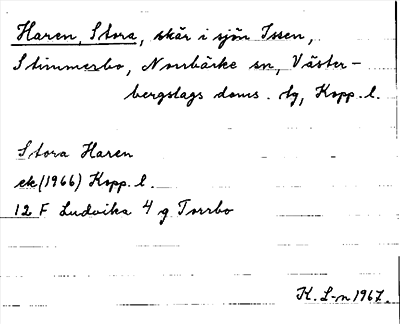 Haren, Stora, skär i sjön Issen,
Stimmerbo, Norrbärke sn, Väster-
bergslags doms. tg, Kopp. l.
Stora Haren
ek (1966) Kopp. l.
12 F Ludvika 4 g Torrbo
K. L-n 1967.